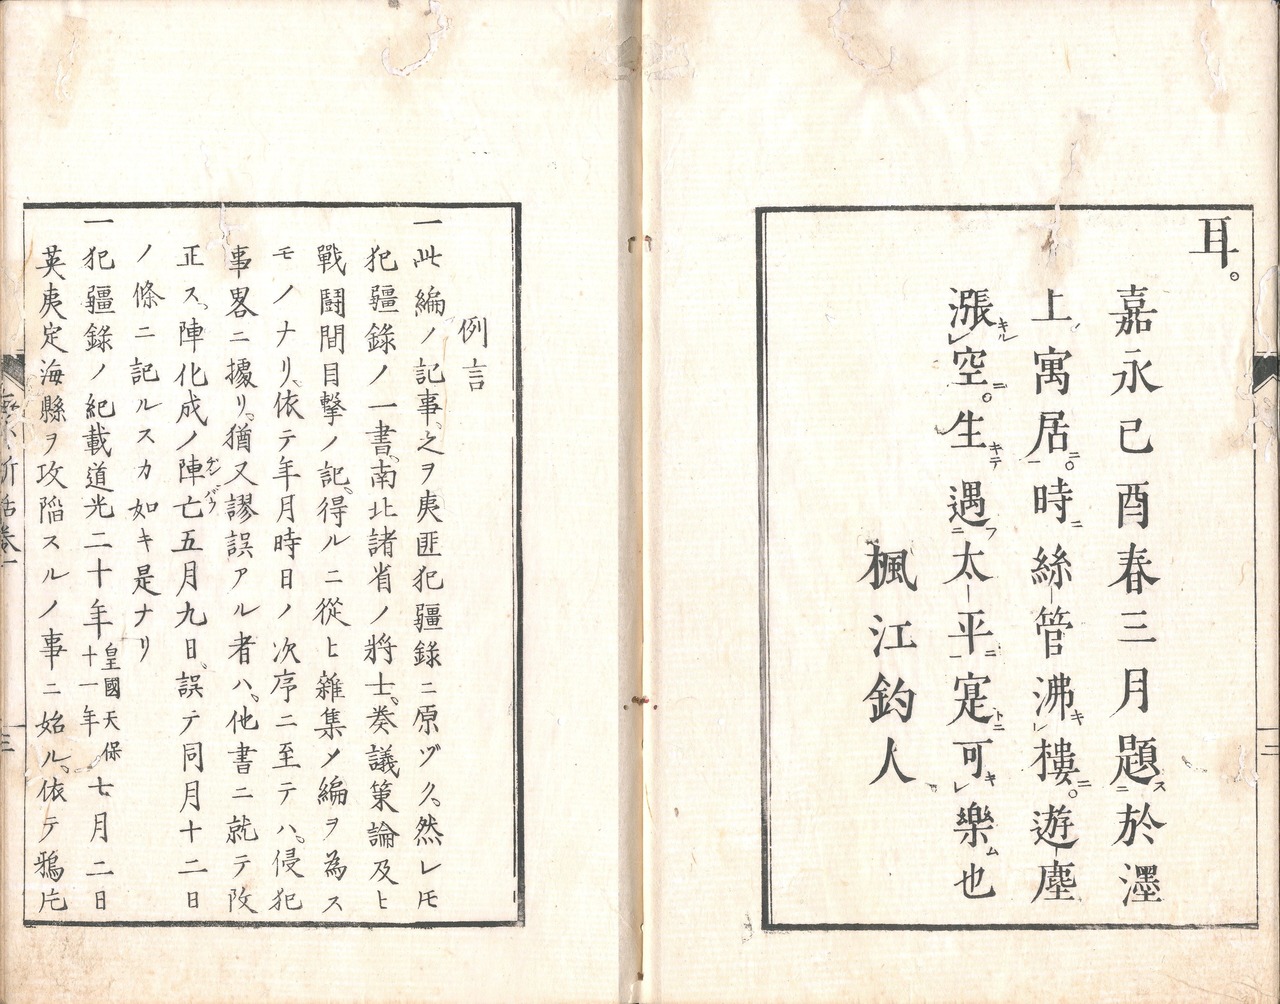 耳。
嘉永己酉春三月題ス二於濹
上ノ寓居ニ一。時ニ絲管沸キレ樓ニ。遊塵
漲キルレ空ニ。生キテ遇フ二太平ニ一寔トニ可キレ樂ム也
楓江釣人
例言
一此編ノ記事、之ヲ夷匪犯疆錄ニ原ヅク。然レ𪜈
犯疆錄ノ一書、南北諸省ノ將士、奏議策論及ヒ
戰鬪間目擊ノ記、得ルニ從ヒ雜集メ編ヲ為ス
モノナリ、依テ年月時日ノ次序ニ至テハ、侵犯
事畧ニ據リ。猶又謬誤アル者ハ、他書ニ就テ改
正ス、陣化成ノ陣亡ヂンバウ五月九日、誤テ同月十二日
ノ條ニ記ルスカ如キ是ナリ
一犯疆錄ノ紀載道光二十年皇國天保十一年七月二日
英夷定海縣ヲ攻陷スルノ事ニ始ル、依テ鴉片